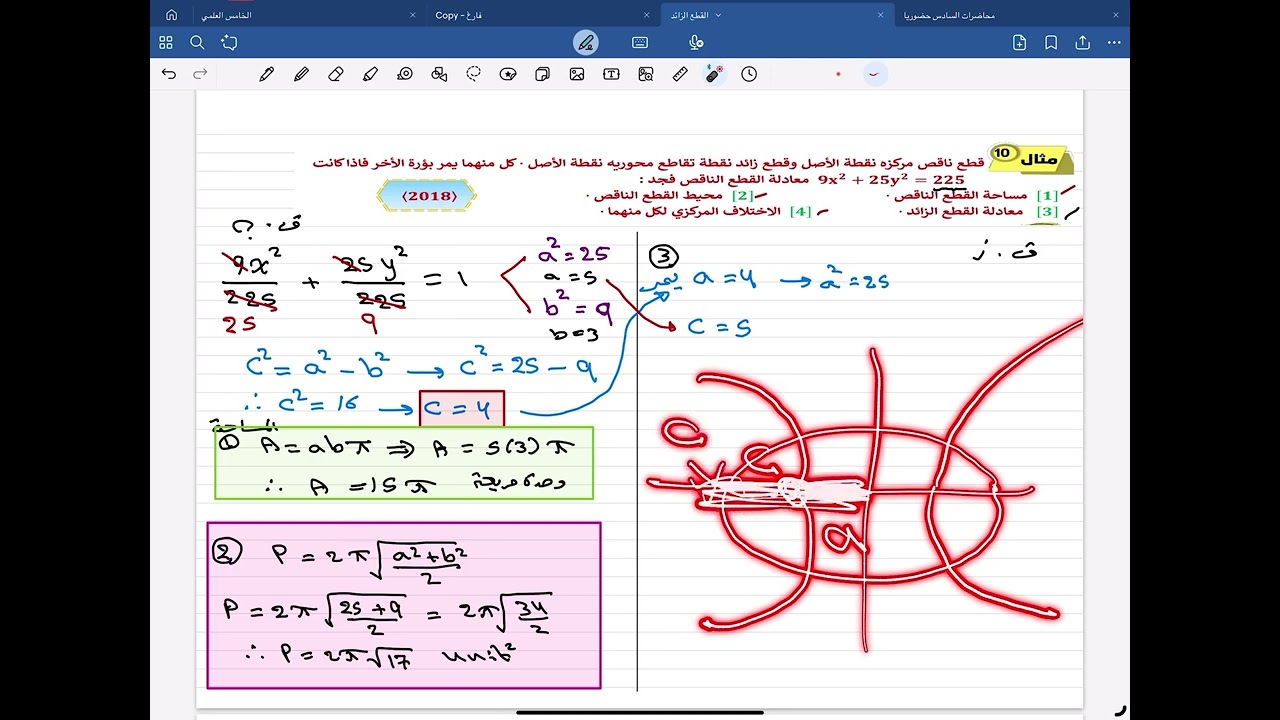 الخامس العلمي
فارغ - Copy
القطع الزائد
محاضرات السادس حضوريا
مثال 10
قطع ناقص مركزه نقطة الأصل وقطع زائد نقطة تقاطع محوريه نقطة الأصل . كل منهما يمر ببؤرة الأخر فاذا كانت
9x² + 25y² = 225 معادلة القطع الناقص فجد :
[1] مساحة القطع الناقص . [2] محيط القطع الناقص .
[3] معادلة القطع الزائد . [4] الاختلاف المركزي لكل منهما .
⟨2018⟩
9x²/225 + 25y²/225 = 1
25 9
a² = 25
a = 5
b² = 9
b = 3
c² = a² - b² → c² = 25 - 9
∴ c² = 16 → c = 4
المساحة
① A = abπ ⇒ A = 5(3)π
∴ A = 15π وحدة مربعة
② P = 2π√((a²+b²)/2)
P = 2π√((25+9)/2) = 2π√(34/2)
∴ P = 2π√17 unit²
ق. ز
③
a = 4 → a² = 25
c = 5
C
C
a